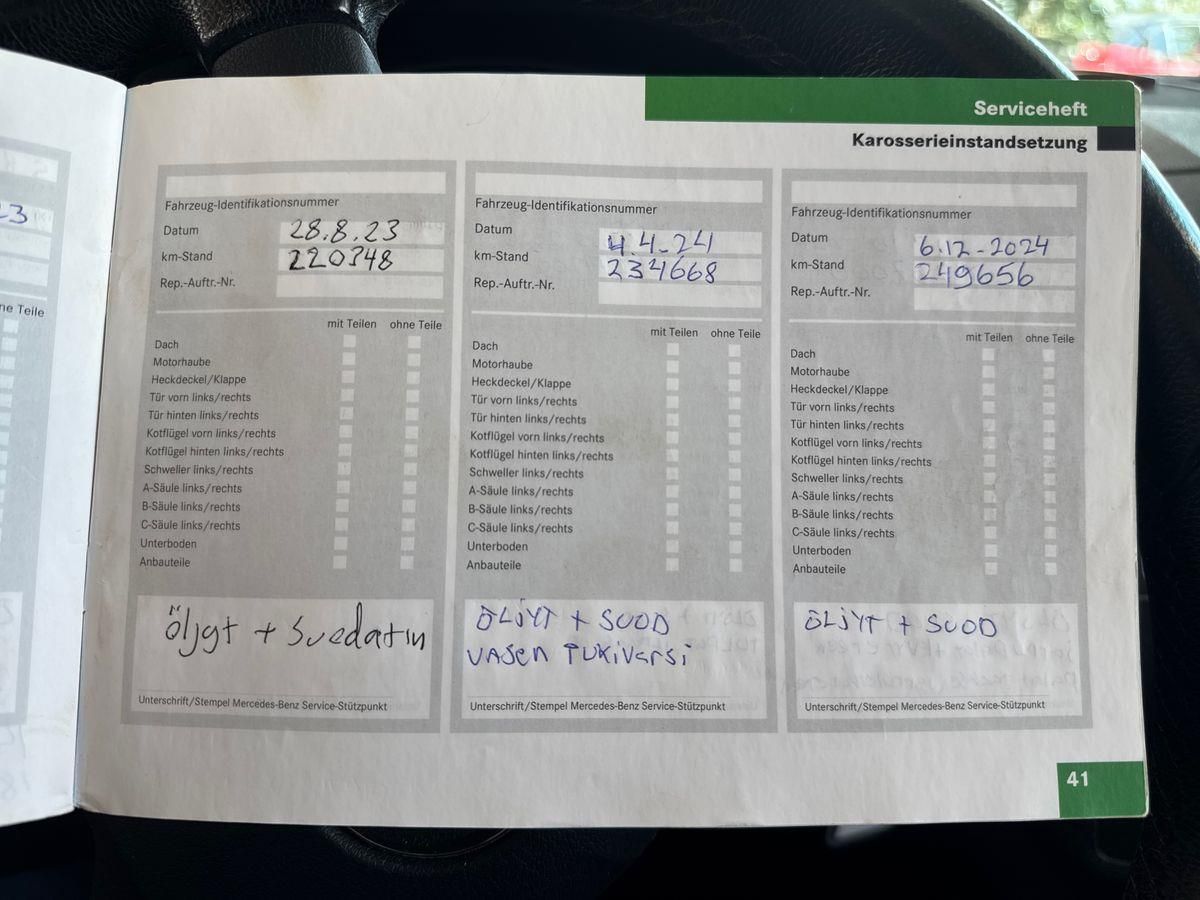 Serviceheft
Karosserieinstandsetzung
Fahrzeug-Identifikationsnummer
Datum 28.8.23
km-Stand 220348
Rep.-Auftr.-Nr.
mit Teilen ohne Teile
Dach
Motorhaube
Heckdeckel/Klappe
Tür vorn links/rechts
Tür hinten links/rechts
Kotflügel vorn links/rechts
Kotflügel hinten links/rechts
Schweller links/rechts
A-Säule links/rechts
B-Säule links/rechts
C-Säule links/rechts
Unterboden
Anbauteile
öljyt + Suodatin
Unterschrift/Stempel Mercedes-Benz Service-Stützpunkt
Fahrzeug-Identifikationsnummer
Datum 4.4-24
km-Stand 234668
Rep.-Auftr.-Nr.
mit Teilen ohne Teile
Dach
Motorhaube
Heckdeckel/Klappe
Tür vorn links/rechts
Tür hinten links/rechts
Kotflügel vorn links/rechts
Kotflügel hinten links/rechts
Schweller links/rechts
A-Säule links/rechts
B-Säule links/rechts
C-Säule links/rechts
Unterboden
Anbauteile
ÖLJYT + SUOD
VASEN TUKIVARSI
Unterschrift/Stempel Mercedes-Benz Service-Stützpunkt
Fahrzeug-Identifikationsnummer
Datum 6.12-2024
km-Stand 249656
Rep.-Auftr.-Nr.
mit Teilen ohne Teile
Dach
Motorhaube
Heckdeckel/Klappe
Tür vorn links/rechts
Tür hinten links/rechts
Kotflügel vorn links/rechts
Kotflügel hinten links/rechts
Schweller links/rechts
A-Säule links/rechts
B-Säule links/rechts
C-Säule links/rechts
Unterboden
Anbauteile
ÖLJYT + SUOD
Unterschrift/Stempel Mercedes-Benz Service-Stützpunkt
41